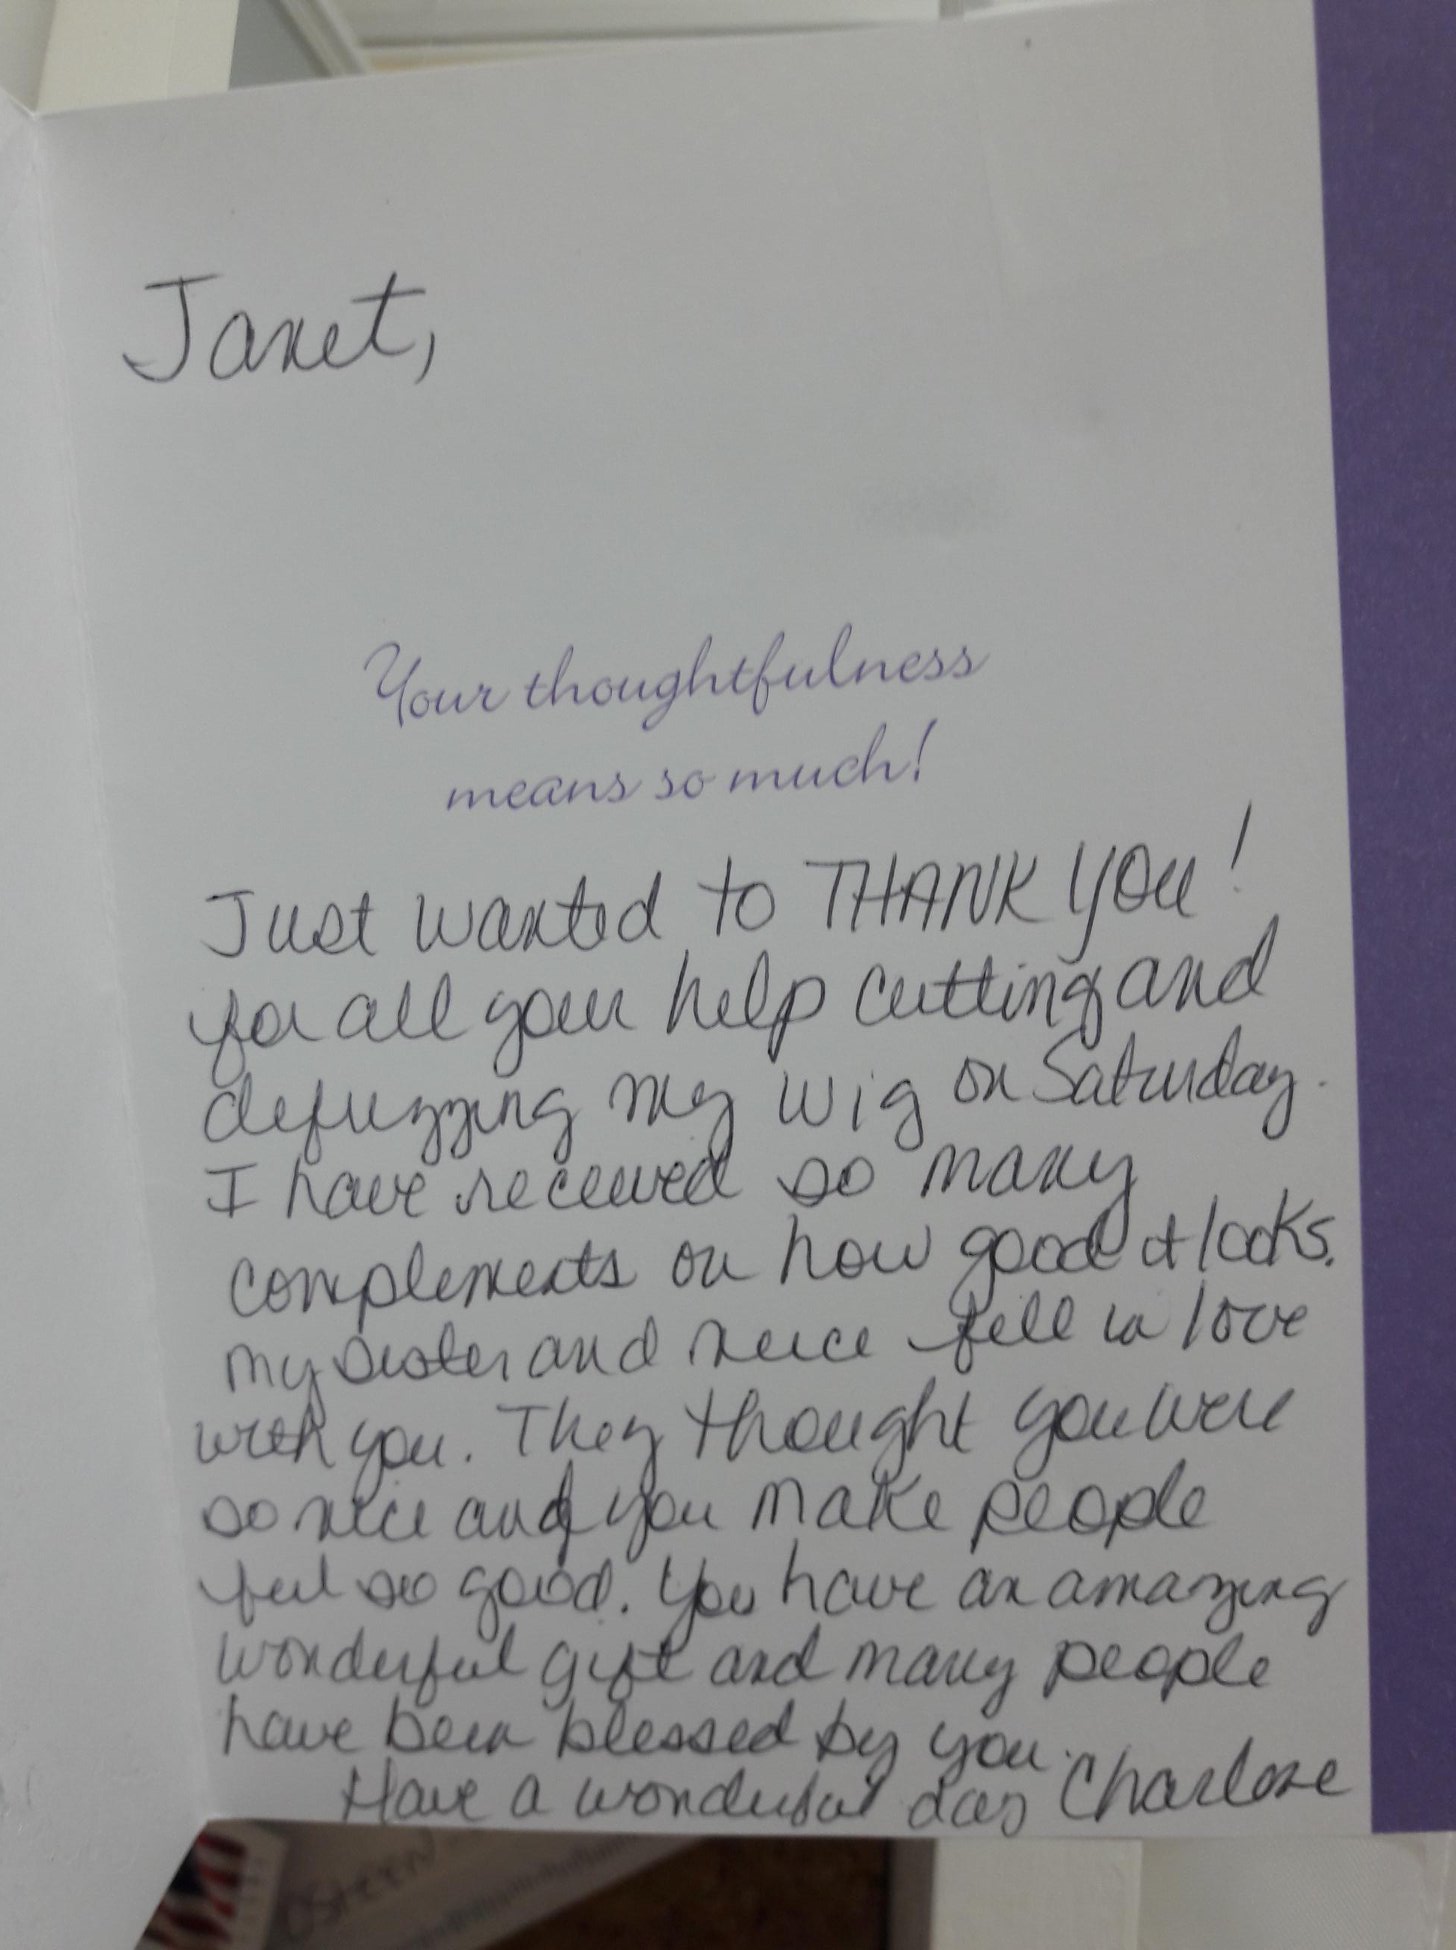 Janet,
Your thoughtfulness
means so much!
Just wanted to THANK YOU!
for all your help cutting and
defuzzing my wig on Saturday.
I have received so many
complements on how good it looks.
my sister and neice fell in love
with you. They thought you were
so nice and you make people
feel so good. You have an amazing
wonderful gift and many people
have been blessed by you.
Have a wonderful day Charlene
OSTEEN